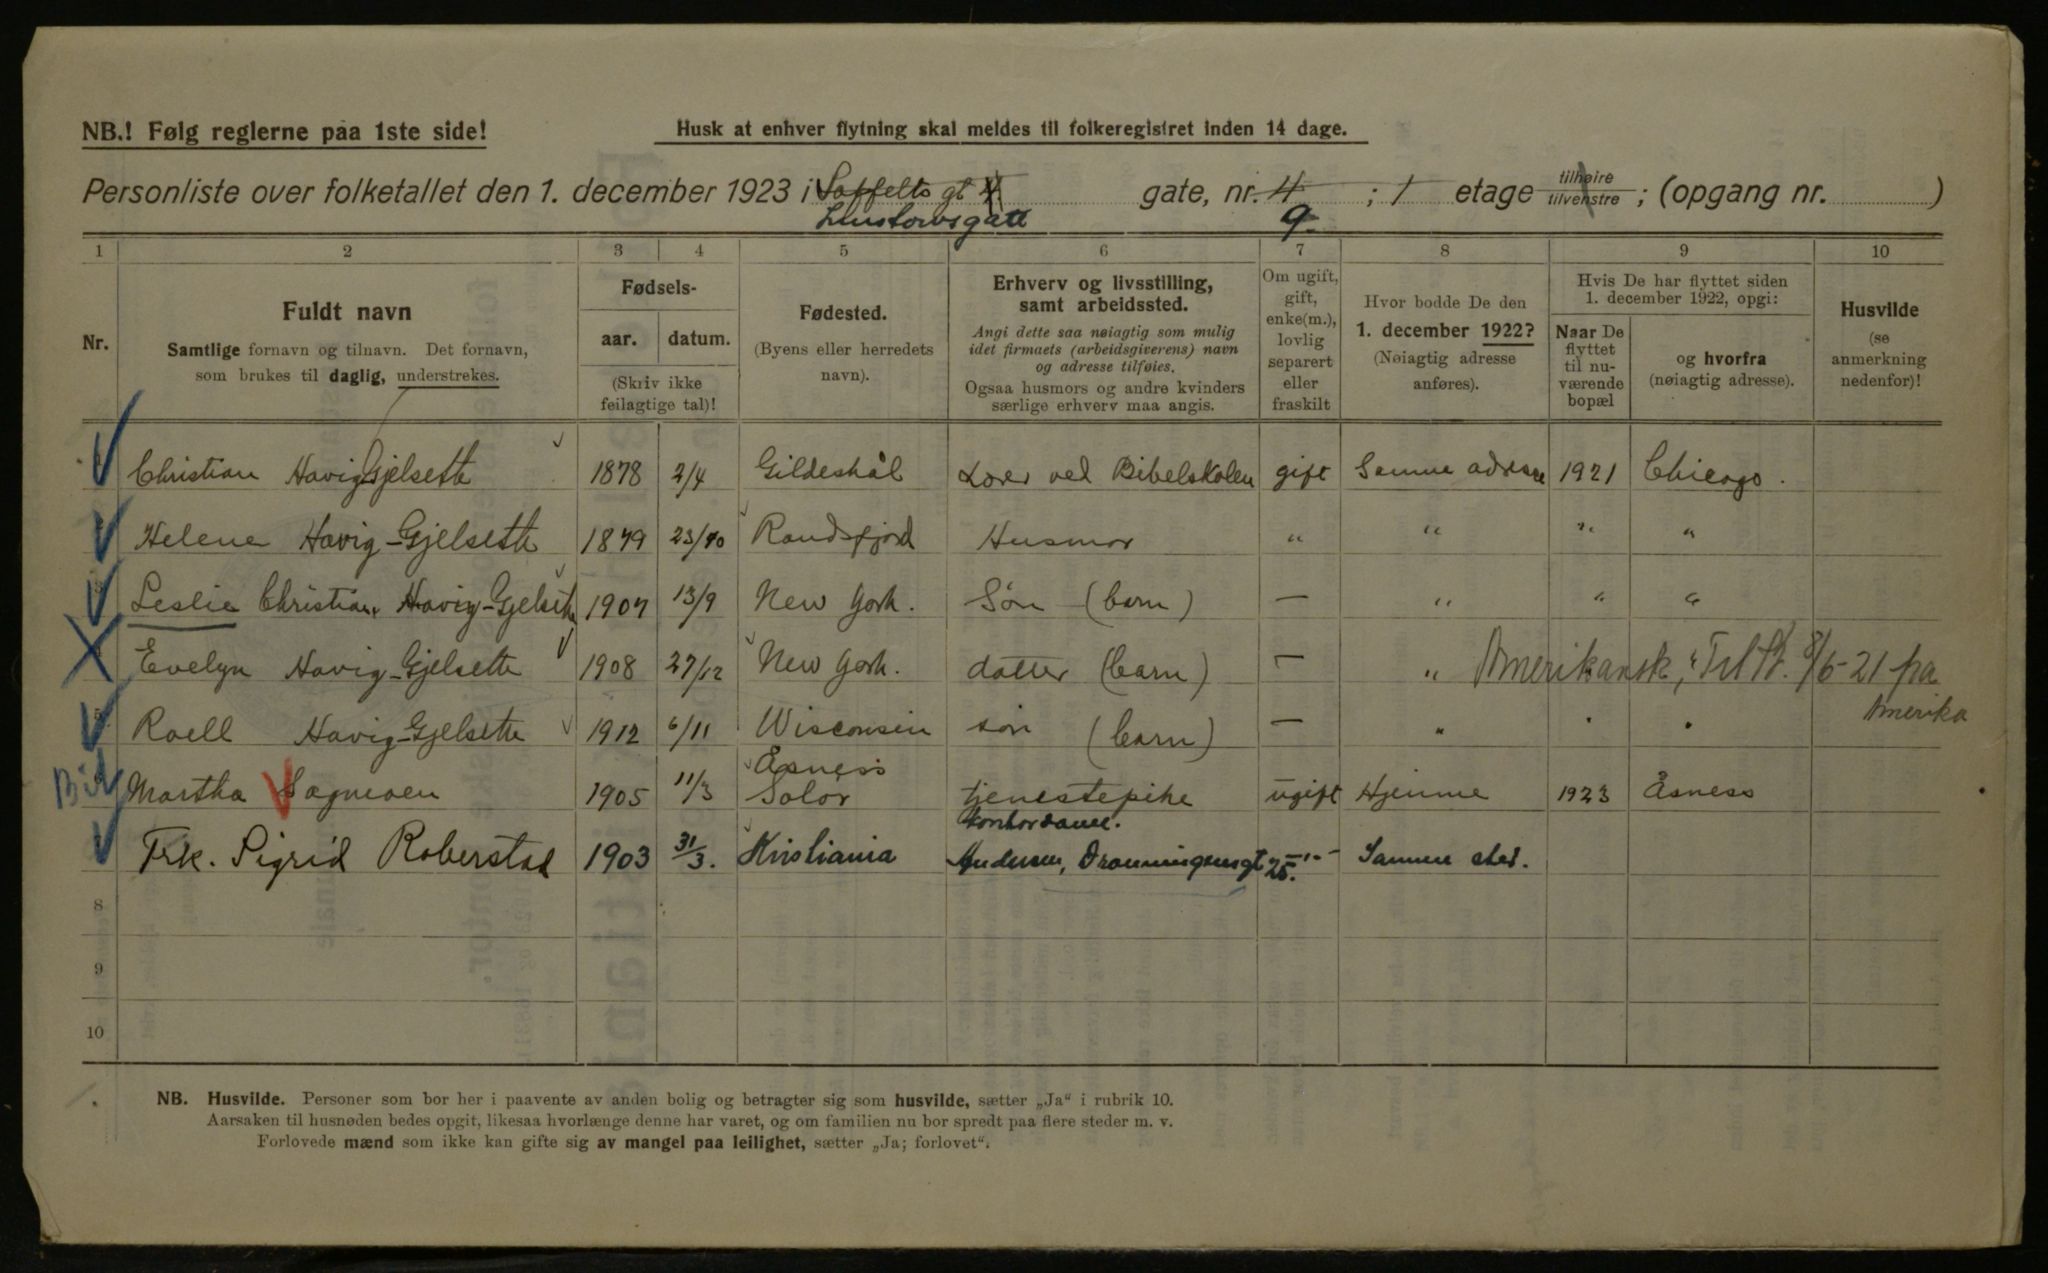 NB.! Følg reglerne paa 1ste side!
Husk at enhver flytning skal meldes til folkeregistret inden 14 dage.
Personliste over folketallet den 1. december 1923 i gt 4 gate, nr. 4 ; 1 etage tilhøire tilvenstre ; (opgang nr. )
Linstowsgate 9.
1 2 3 4 5 6 7 8 9 10
Nr.
Fuldt navn
Samtlige fornavn og tilnavn. Det fornavn,
som brukes til daglig, understrekes.
Fødsels-
aar. datum.
(Skriv ikke
feilagtige tal)!
Fødested.
(Byens eller herredets
navn).
Erhverv og livsstilling,
samt arbeidssted.
Angi dette saa nøiagtig som mulig
idet firmaets (arbeidsgiverens) navn
og adresse tilføies.
Ogsaa husmors og andre kvinders
særlige erhverv maa angis.
Om ugift,
gift,
enke(m.),
lovlig
separert
eller
fraskilt
Hvor bodde De den
1. december 1922?
(Nøiagtig adresse
anføres).
Hvis De har flyttet siden
1. december 1922, opgi:
Naar De
flyttet
til nu-
værende
bopæl
og hvorfra
(nøiagtig adresse).
Husvilde
(se
anmerkning
nedenfor)!
Christian Havig Gjelseth 1878 2/4 Gildeskål Lærer ved Bibelskolen gift Samme adresse 1921 Chicago.
Helene Havig-Gjelseth 1879 23/10 Randsfjord Husmor " " " "
Leslie Christian Havig-Gjelseth 1907 13/9 New York. Søn (barn) — " " "
Evelyn Havig-Gjelseth 1908 27/12 New York. datter (barn) — " Amerikansk, " 8/6-21 fra
Amerika
Roell Havig-Gjelseth 1912 6/11 Wisconsin søn (barn) — " " "
Åsness
Martha Sagmoen 1905 11/3 Solør tjenestepike ugift Hjemme 1923 Åsness
kontordame.
Frk. Sigrid Roberstad 1903 31/3. Kristiania Andersen, Dronningensgt 25. —"— Samme sted.
8
9
10
NB. Husvilde. Personer som bor her i paavente av anden bolig og betragter sig som husvilde, sætter „Ja“ i rubrik 10.
Aarsaken til husnøden bedes opgit, likesaa hvorlænge denne har varet, og om familien nu bor spredt paa flere steder m. v.
Forlovede mænd som ikke kan gifte sig av mangel paa leilighet, sætter „Ja; forlovet“.